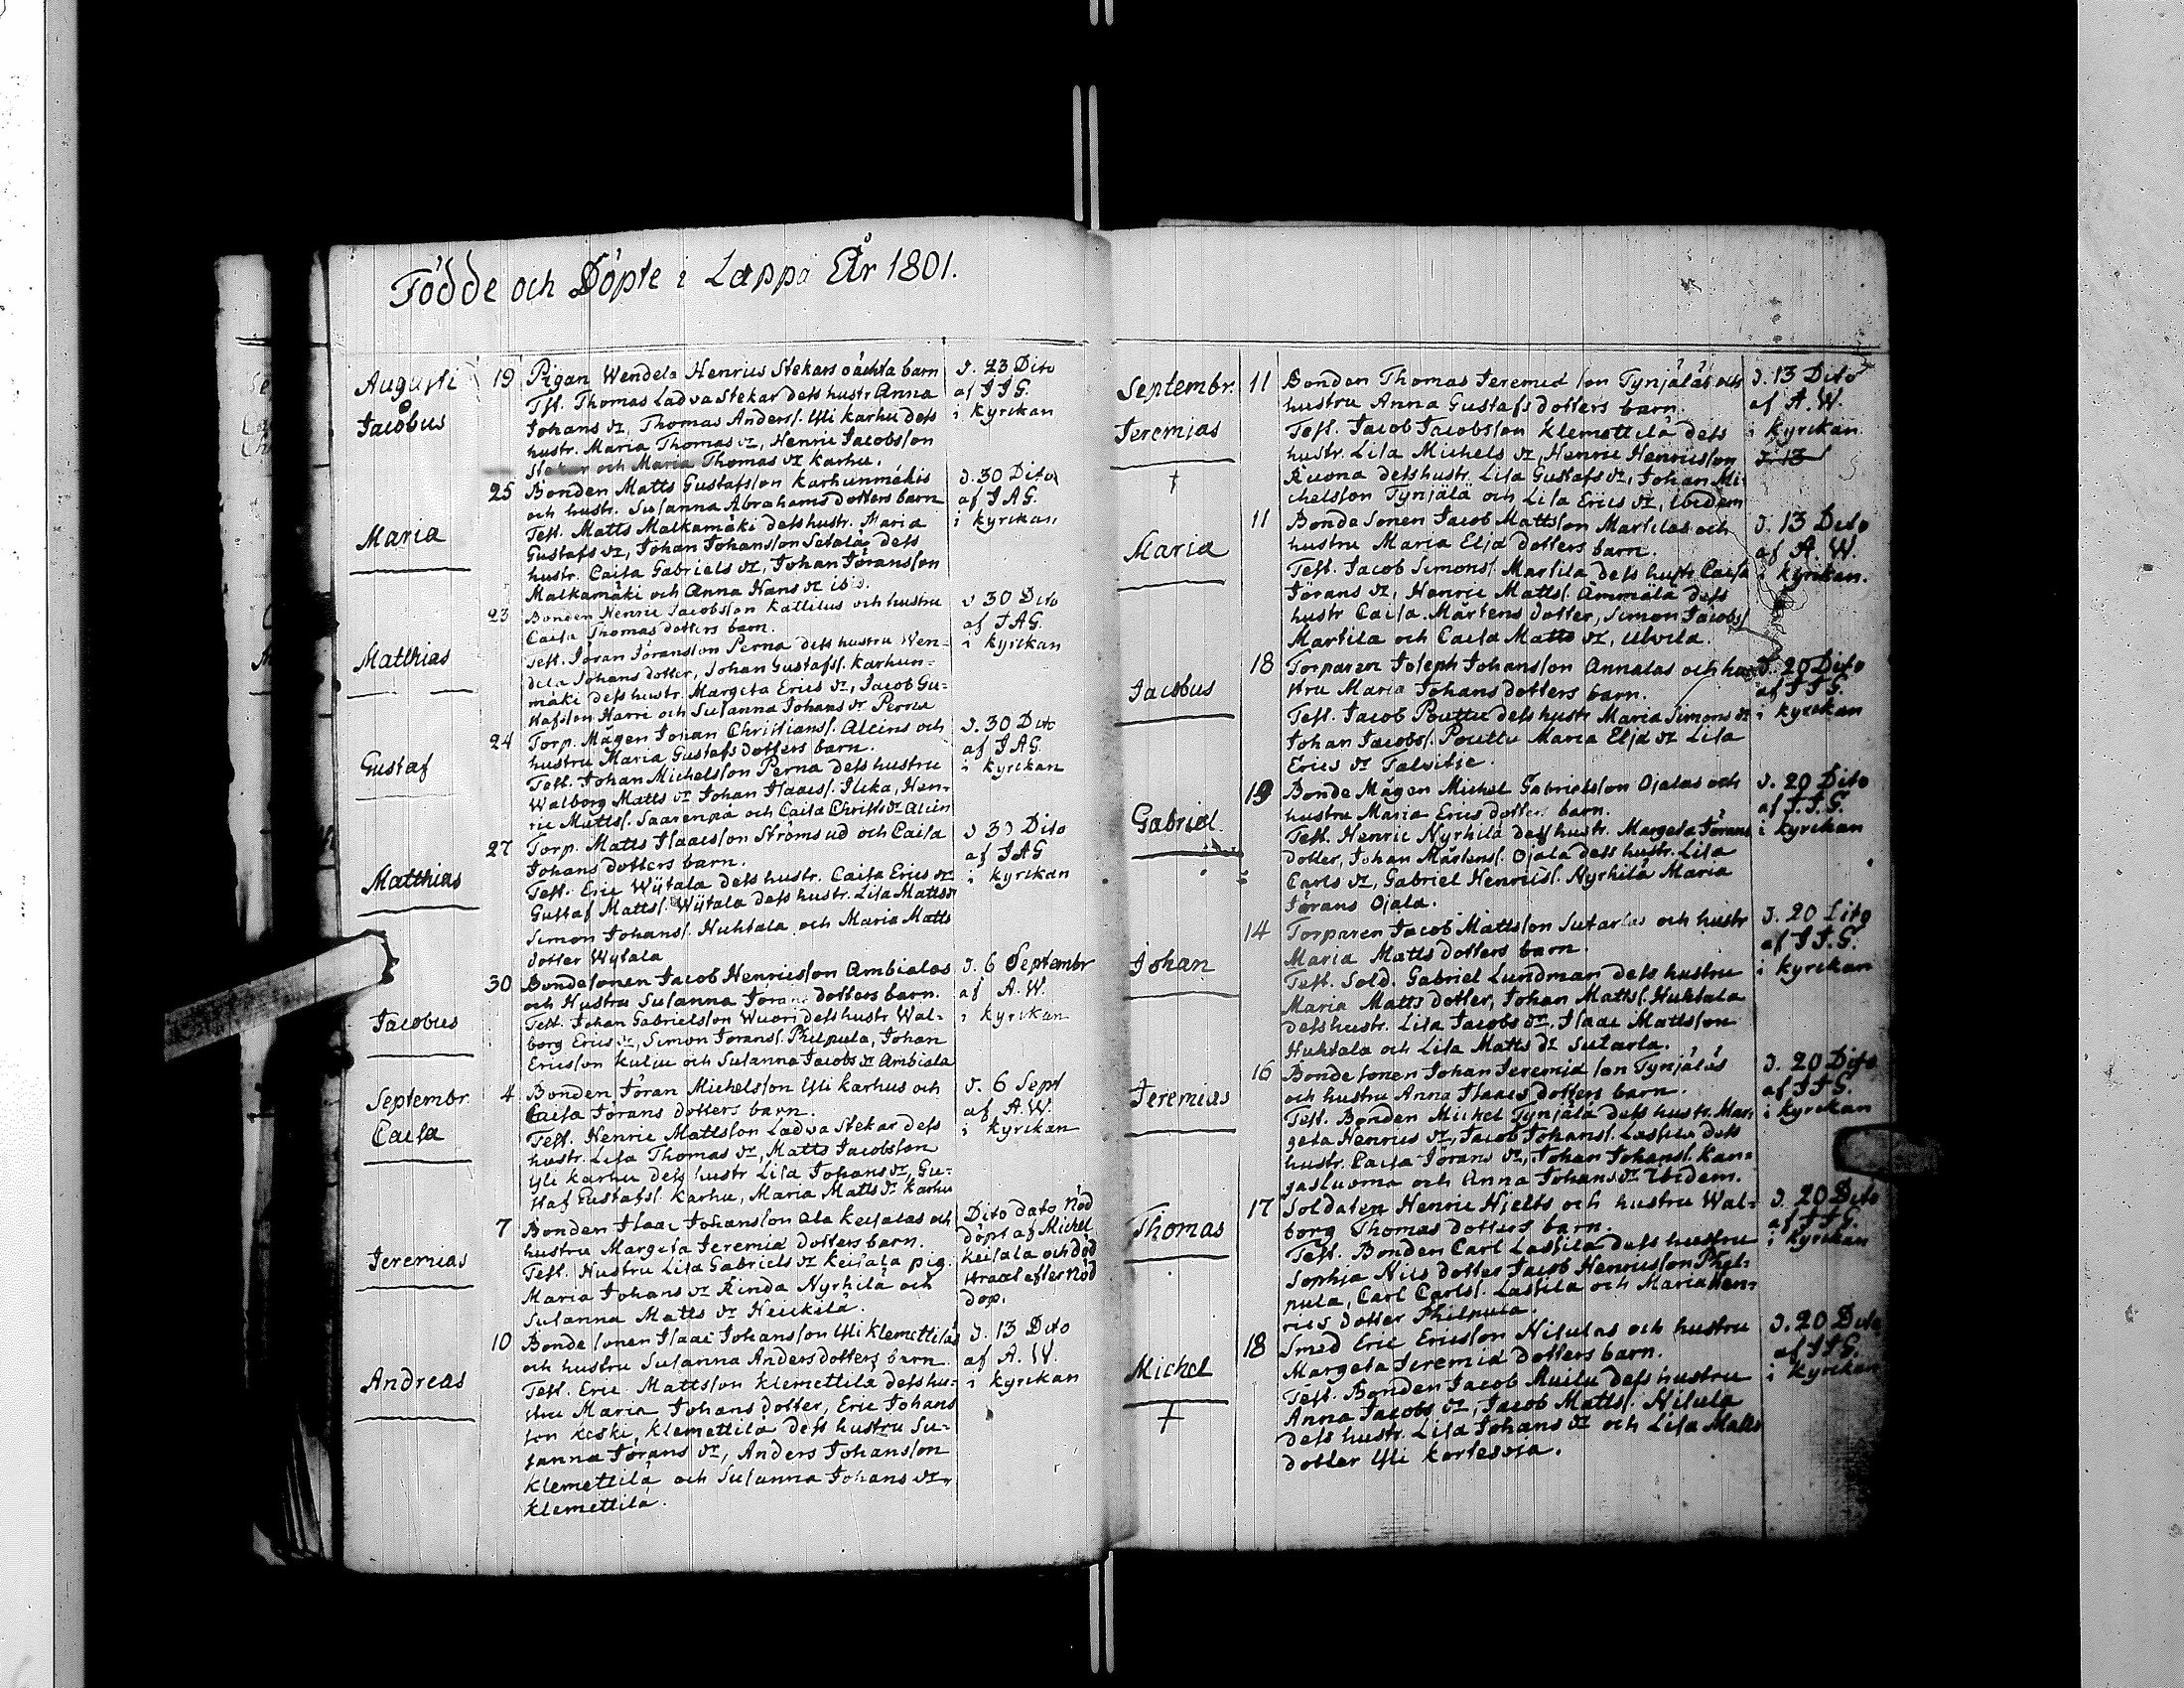 Födde och Döpte i Lappo År 1801.
Augusti 19 Pigan Wendela Henrics Stekars oächta barn d. 23 Dito
Jacobus Test. Thomas Ladva Stekar dess hustr Anna af J J G.
Johans dr, Thomas Anders. Yli Karhu dess i kyrkan
hustr. Maria Thomas dr, Henric Jacobsson
Stekar och Maria Thomas dr Karhu.
25 Bonden Matts Gustafsson Karhunmäkis d. 30 Dito
och hustr. Susanna Abrahams dotters barn af J A G.
Maria Test. Matts Malkamäki dess hustr. Maria i kyrkan
Gustafs dr, Johan Johansson Setala dess
hustr. Caisa Gabriels dr, Johan Jöransson
Malkamäki och Anna Hans dr ibid.
23 Bonden Henric Jacobsson Kattilus och hustru d 30 Dito
Caisa Thomas dotters barn. af J A G.
Matthias Test. Jöran Jöransson Perna dess hustru Wen- i kyrkan
dela Johans dotter, Johan Gustafss. Karhun-
mäki dess hustr. Margeta Erics dr, Jacob Gu-
stafsson Harri och Susanna Johans dr Perna
24 Torp. Mågen Johan Christianss. Alcins och d. 30 Dito
hustru Maria Gustafs dotters barn. af J A G.
Gustaf Test. Johan Michelsson Perna dess hustru i kyrkan
Walborg Matts dr Johan Isaacs. Ilika, Hen-
ric Matts. Saarenpä och Caisa Christs dr Alcin
27 Torp. Matts Isaacsson Strömsud och Caisa d 30 Dito
Johans dotters barn. af J A G
Matthias Test. Eric Wijtala dess hustr. Caisa Erics dr i kyrkan
Gustaf Matts. Wijtala dess hustr. Lisa Matts dr
Simon Johans. Huhtala och Maria Matts
dotter Wijtala
30 Bondesonen Jacob Henricsson Ambialas d. 6 Septembr
och Hustru Susanna Jörans dotters barn. af A. W.
Jacobus Test. Johan Gabrielsson Wuori dess hustr Wal- i kyrkan
borg Erics dr, Simon Jörans. Philpula, Johan
Ericsson Kulju och Susanna Jacobs dr Ambiala
Septembr 4 Bonden Jöran Michelsson Yli Karhus och d. 6 Sept
Caisa Jörans dotters barn. af A. W.
Caisa Test. Henric Mattsson Ladva Stekar dess i kyrkan
hustr. Lisa Thomas dr, Matts Jacobsson
Yli Karhu dess hustr Lisa Johans dr, Gu-
staf Gustafs. Karhu, Maria Matts dr Karhu
7 Bonden Isaac Johansson Ala Keisalas och Dito dato Nöd
hustru Margeta Jeremiæ dotters barn. döpt af Michel
Jeremias Test. Hustru Lisa Gabriels dr Keisala pig. Keisala och död
Maria Johans dr Rinda Nyrhilä och straxt efter Nöd
Susanna Matts dr Heickilä. dop.
10 Bondesonen Isaac Johansson Yli Klemettilas d. 13 Dito
och hustru Susanna Anders dotters barn. af A. W.
Andreas Test. Eric Mattsson Klemettila dess hu- i kyrkan
stru Maria Johans dotter, Eric Johans
son Keski, Klemettila dess hustru Su-
sanna Jörans dr, Anders Johansson
Klemettila och Susanna Johans dr,
Klemettila.
Septembr. 11 Bonden Thomas Jeremiæ son Tynjäläs och d. 13 Dito
hustru Anna Gustafs dotters barn. af A. W.
Jeremias Test. Jacob Jacobsson Klemettila dess i kyrkan
hustr. Lisa Michels dr, Henric Henricsson d 13
† Ruona dess hustr. Lisa Gustafs dr, Johan Mi
chelsson Tynjälä och Lisa Erics dr, ibidem
11 Bonde sonen Jacob Mattsson Martilas och d. 13 Dito
Maria hustru Maria Eljæ dotters barn. af A. W.
Test. Jacob Simons. Martila dess hustr. Caisa i kyrkan.
Jörans dr, Henric Matts. Ämmälä dess
hustr Caisa Mårtens dotter, Simon Jacobs
Martila och Caisa Matts dr, Ulvila.
18 Torparen Joseph Johansson Annalas och hu d. 20 Dito
Jacobus stru Maria Johans dotters barn. af J J G.
Test. Jacob Pouttu dess hustr Maria Simons dr i kyrkan
Johan Jacobs. Pouttu Maria Eljæ dr Lisa
Erics dr Talvitje.
19 Bonde Mågen Michel Gabrielsson Ojalas och d. 20 Dito
Gabriel. hustru Maria Erics dotters barn. af J. J. G.
Test. Henric Nyrhilä dess hustr. Margeta Jörans i kyrkan
dotter, Johan Mårtens. Ojala dess hustr. Lisa
Carls dr, Gabriel Henrics. Nyrhilä Maria
Jörans Ojala.
14 Torparen Jacob Mattsson Sutarlas och hustr d. 20 Dito
Maria Matts dotters barn. af J J. G.
Johan Test. Sold. Gabriel Lundman dess hustru i kyrkan
Maria Matts dotter, Johan Matts. Huhtala
dess hustr. Lisa Jacobs dr, Isaac Mattsson
Huhtala och Lisa Matts dr Sutarla.
16 Bonde sonen Johan Jeremiæ son Tynjäläs d. 20 Dito
Jeremias och hustru Anna Isaacs dotters barn. af J J G.
Test. Bonden Michel Tynjälä dess hustr. Mar- i kyrkan
geta Henrics dr, Jacob Johans. Lassila dess
hustr. Caisa Jörans dr, Johan Johans. Kan-
gasluoma och Anna Johans dr Ibidem.
17 Soldaten Henric Hjelts och hustru Wal- d. 20 Dito
Thomas borg Thomas dotters barn. af J J G.
Test. Bonden Carl Lassila dess hustru i kyrkan
Sophia Nils dotter Jacob Henricsson Phil-
pula, Carl Carls. Lassila och Maria Hen-
rics dotter Philpula.
18 Smed Eric Ericsson Hisulas och hustru d. 20 Dito
Michel Margeta Jeremiæ dotters barn. af J J G.
Test. Bonden Jacob Muilu dess hustru i kyrkan
† Anna Jacobs dr, Jacob Matts. Hisula
dess hustr. Lisa Johans dr och Lisa Matts
dotter Yli Kortesoja.